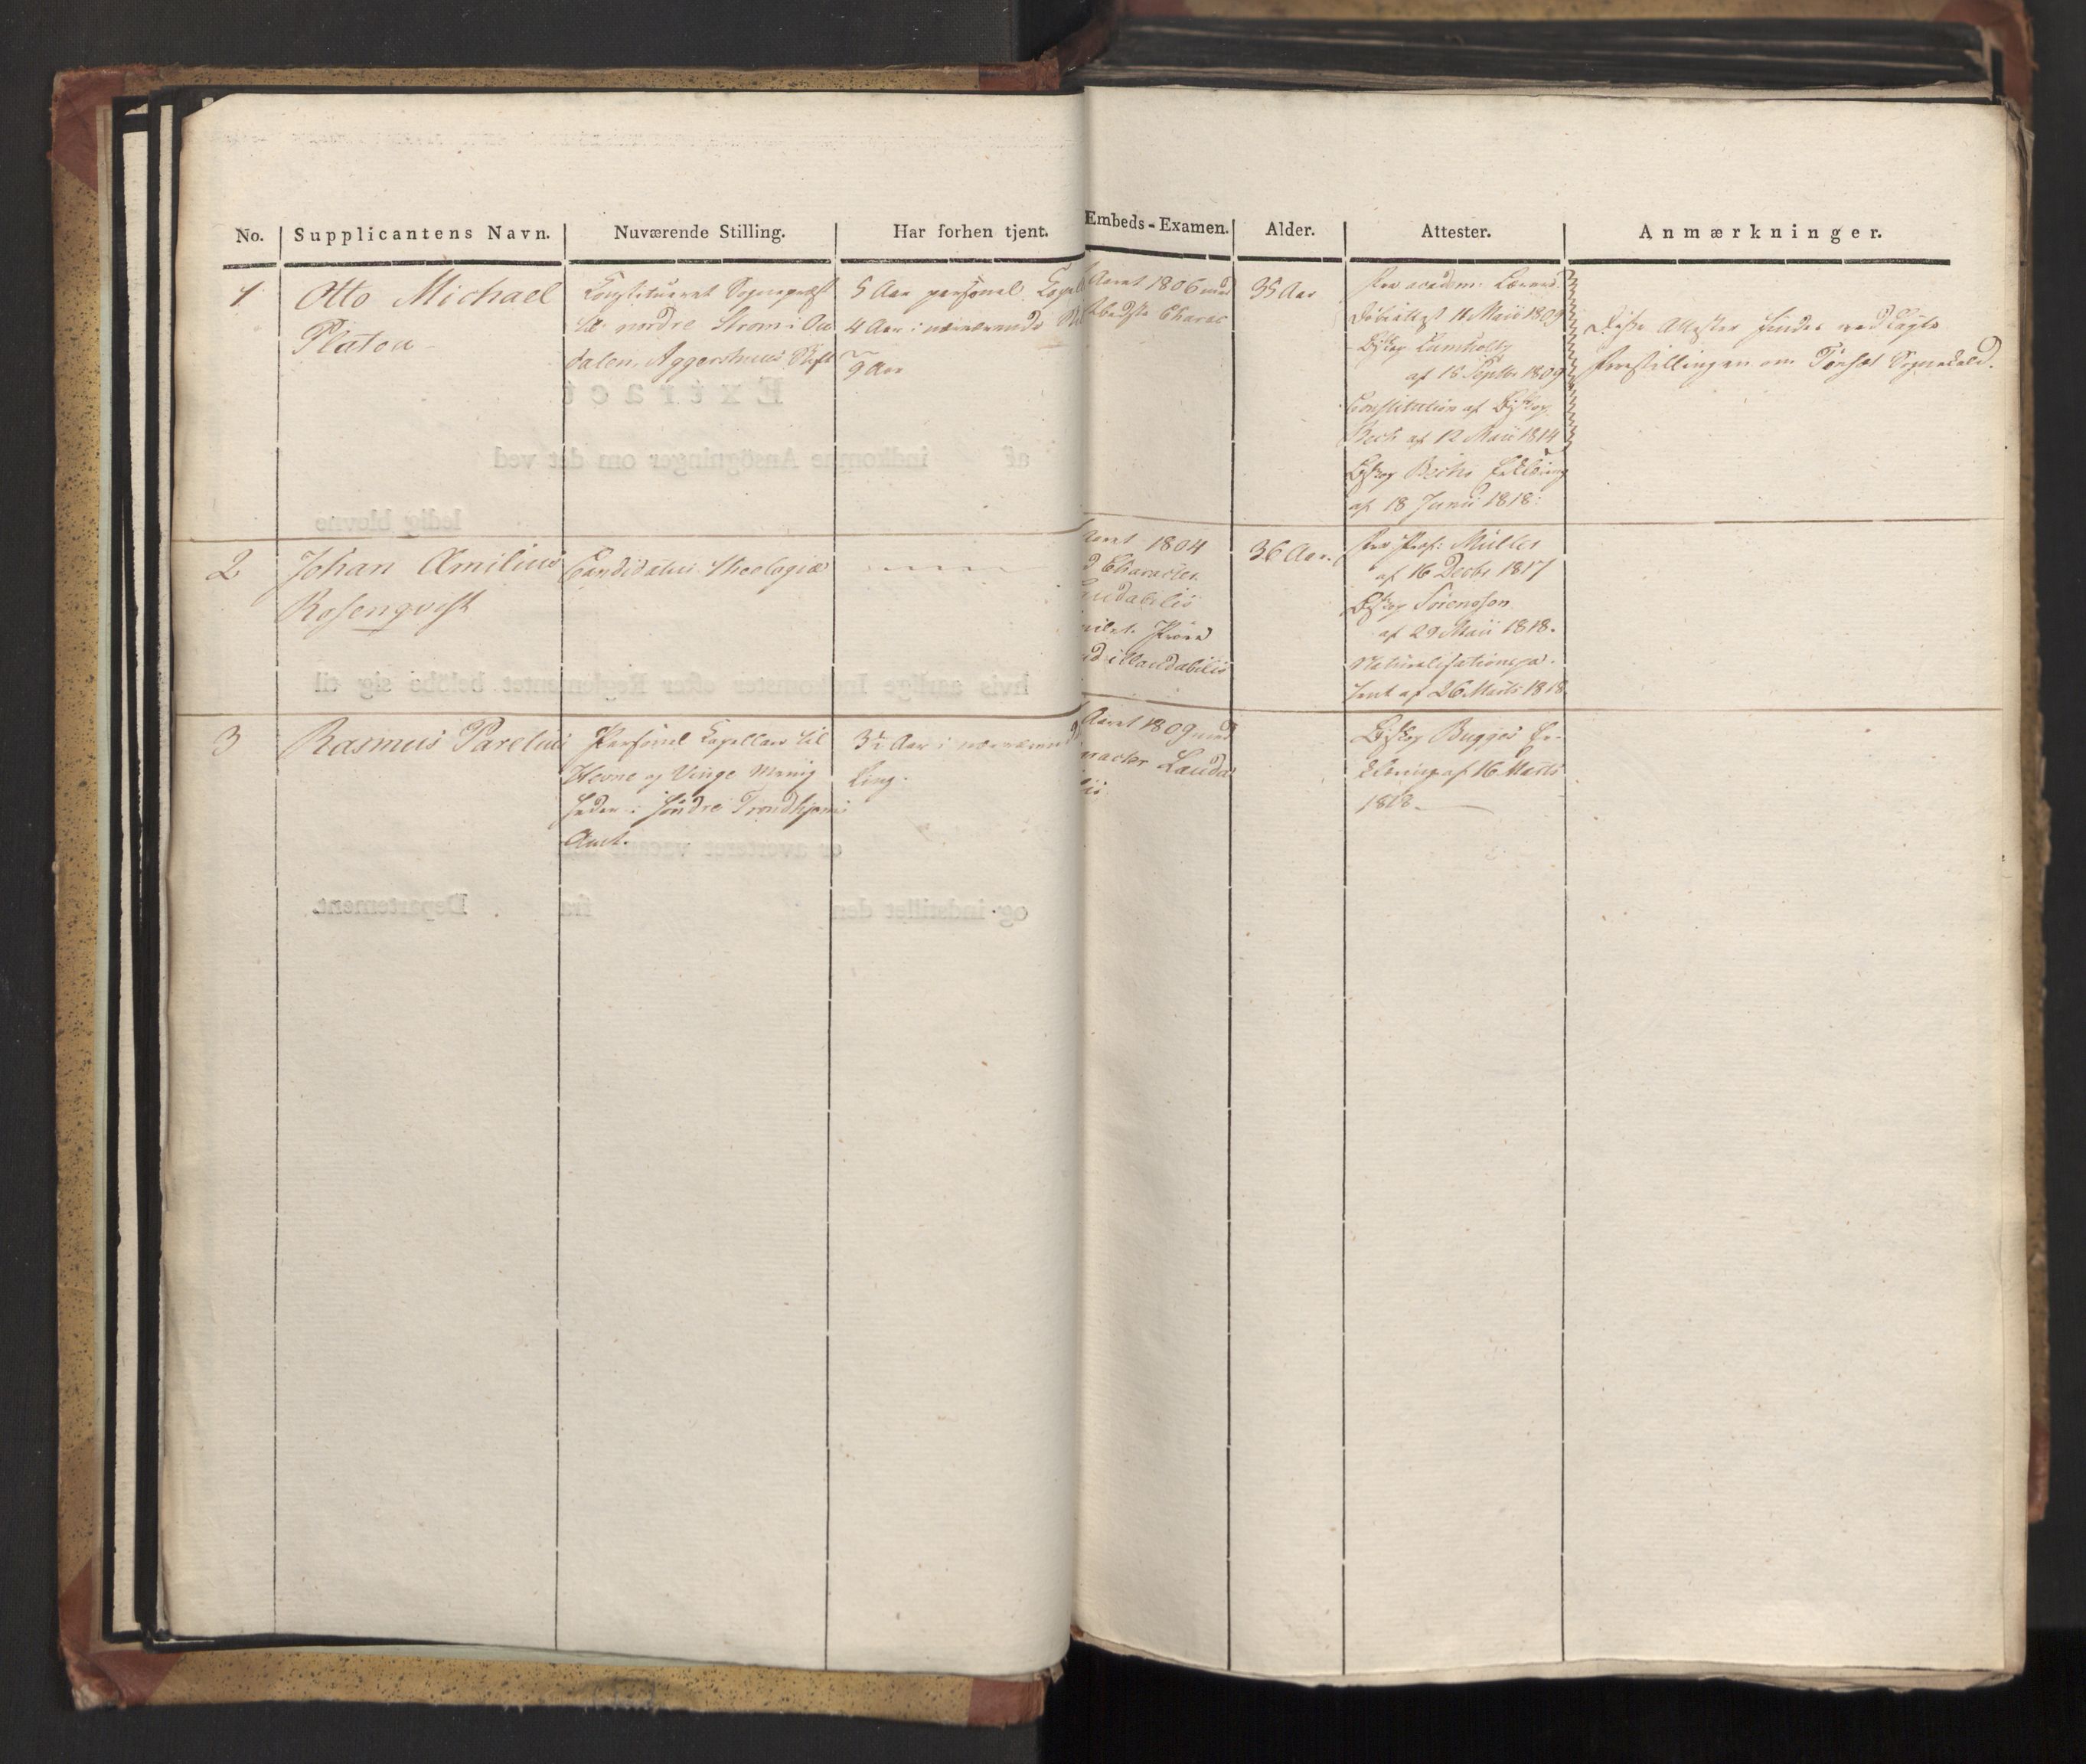 No. Supplicantens Navn. Nuværende Stilling. Har forhen tjent. Embeds-Examen. Alder. Attester. Anmærkninger.
1
Otto Michael
Platou
Constitueret Sognepræst
til nordre Strøm i Ou
dalen, Aggershuus Stift
5 Aar personel Capel
4 Aar i nærværende
9 Aar
Aaret 1806 med
bedste Charac
35 Aar
Fra academ: Lærere
Døbeattest 11 Maii 1809
Biskop
af 15 Septbr 1809
Constitution af Biskop
Bech af 12 Maii 1814
Biskop Bechs Erklæring
af 18 Junii 1818:
Disse Attester findes vedlagte
Forestillingen om Tønset Sognekald.
2
Johan Æmilius
Rosenqvist
Candidatus Theologiæ
Aaret 1804
d Character
audabilis
Prøve
d: illaudabilis
36 Aar.
Fra Prof: Müller
af 16 Decbr 1817
Biskop Sørensen
af 29 Maii 1818.
Naturalisationspa-
tent af 26 Marts 1818.
3
Rasmus Parelius
Personel Capellan til
Hevne og Vinge Menig
heder i søndre Trondhjems
Amt.
3½ Aar i nærværen
Aaret 1809 med
aracter Lauda
lis
Biskop Bugges Er-
klæring af 16 Marts
1818.
Extract
af indkomne Ansögninger om det ved
ledig blevne
hvis aarlige Indkomster efter Reglementet belöbe sig til
er averteret vacant den
og indstillet den fra Departement.